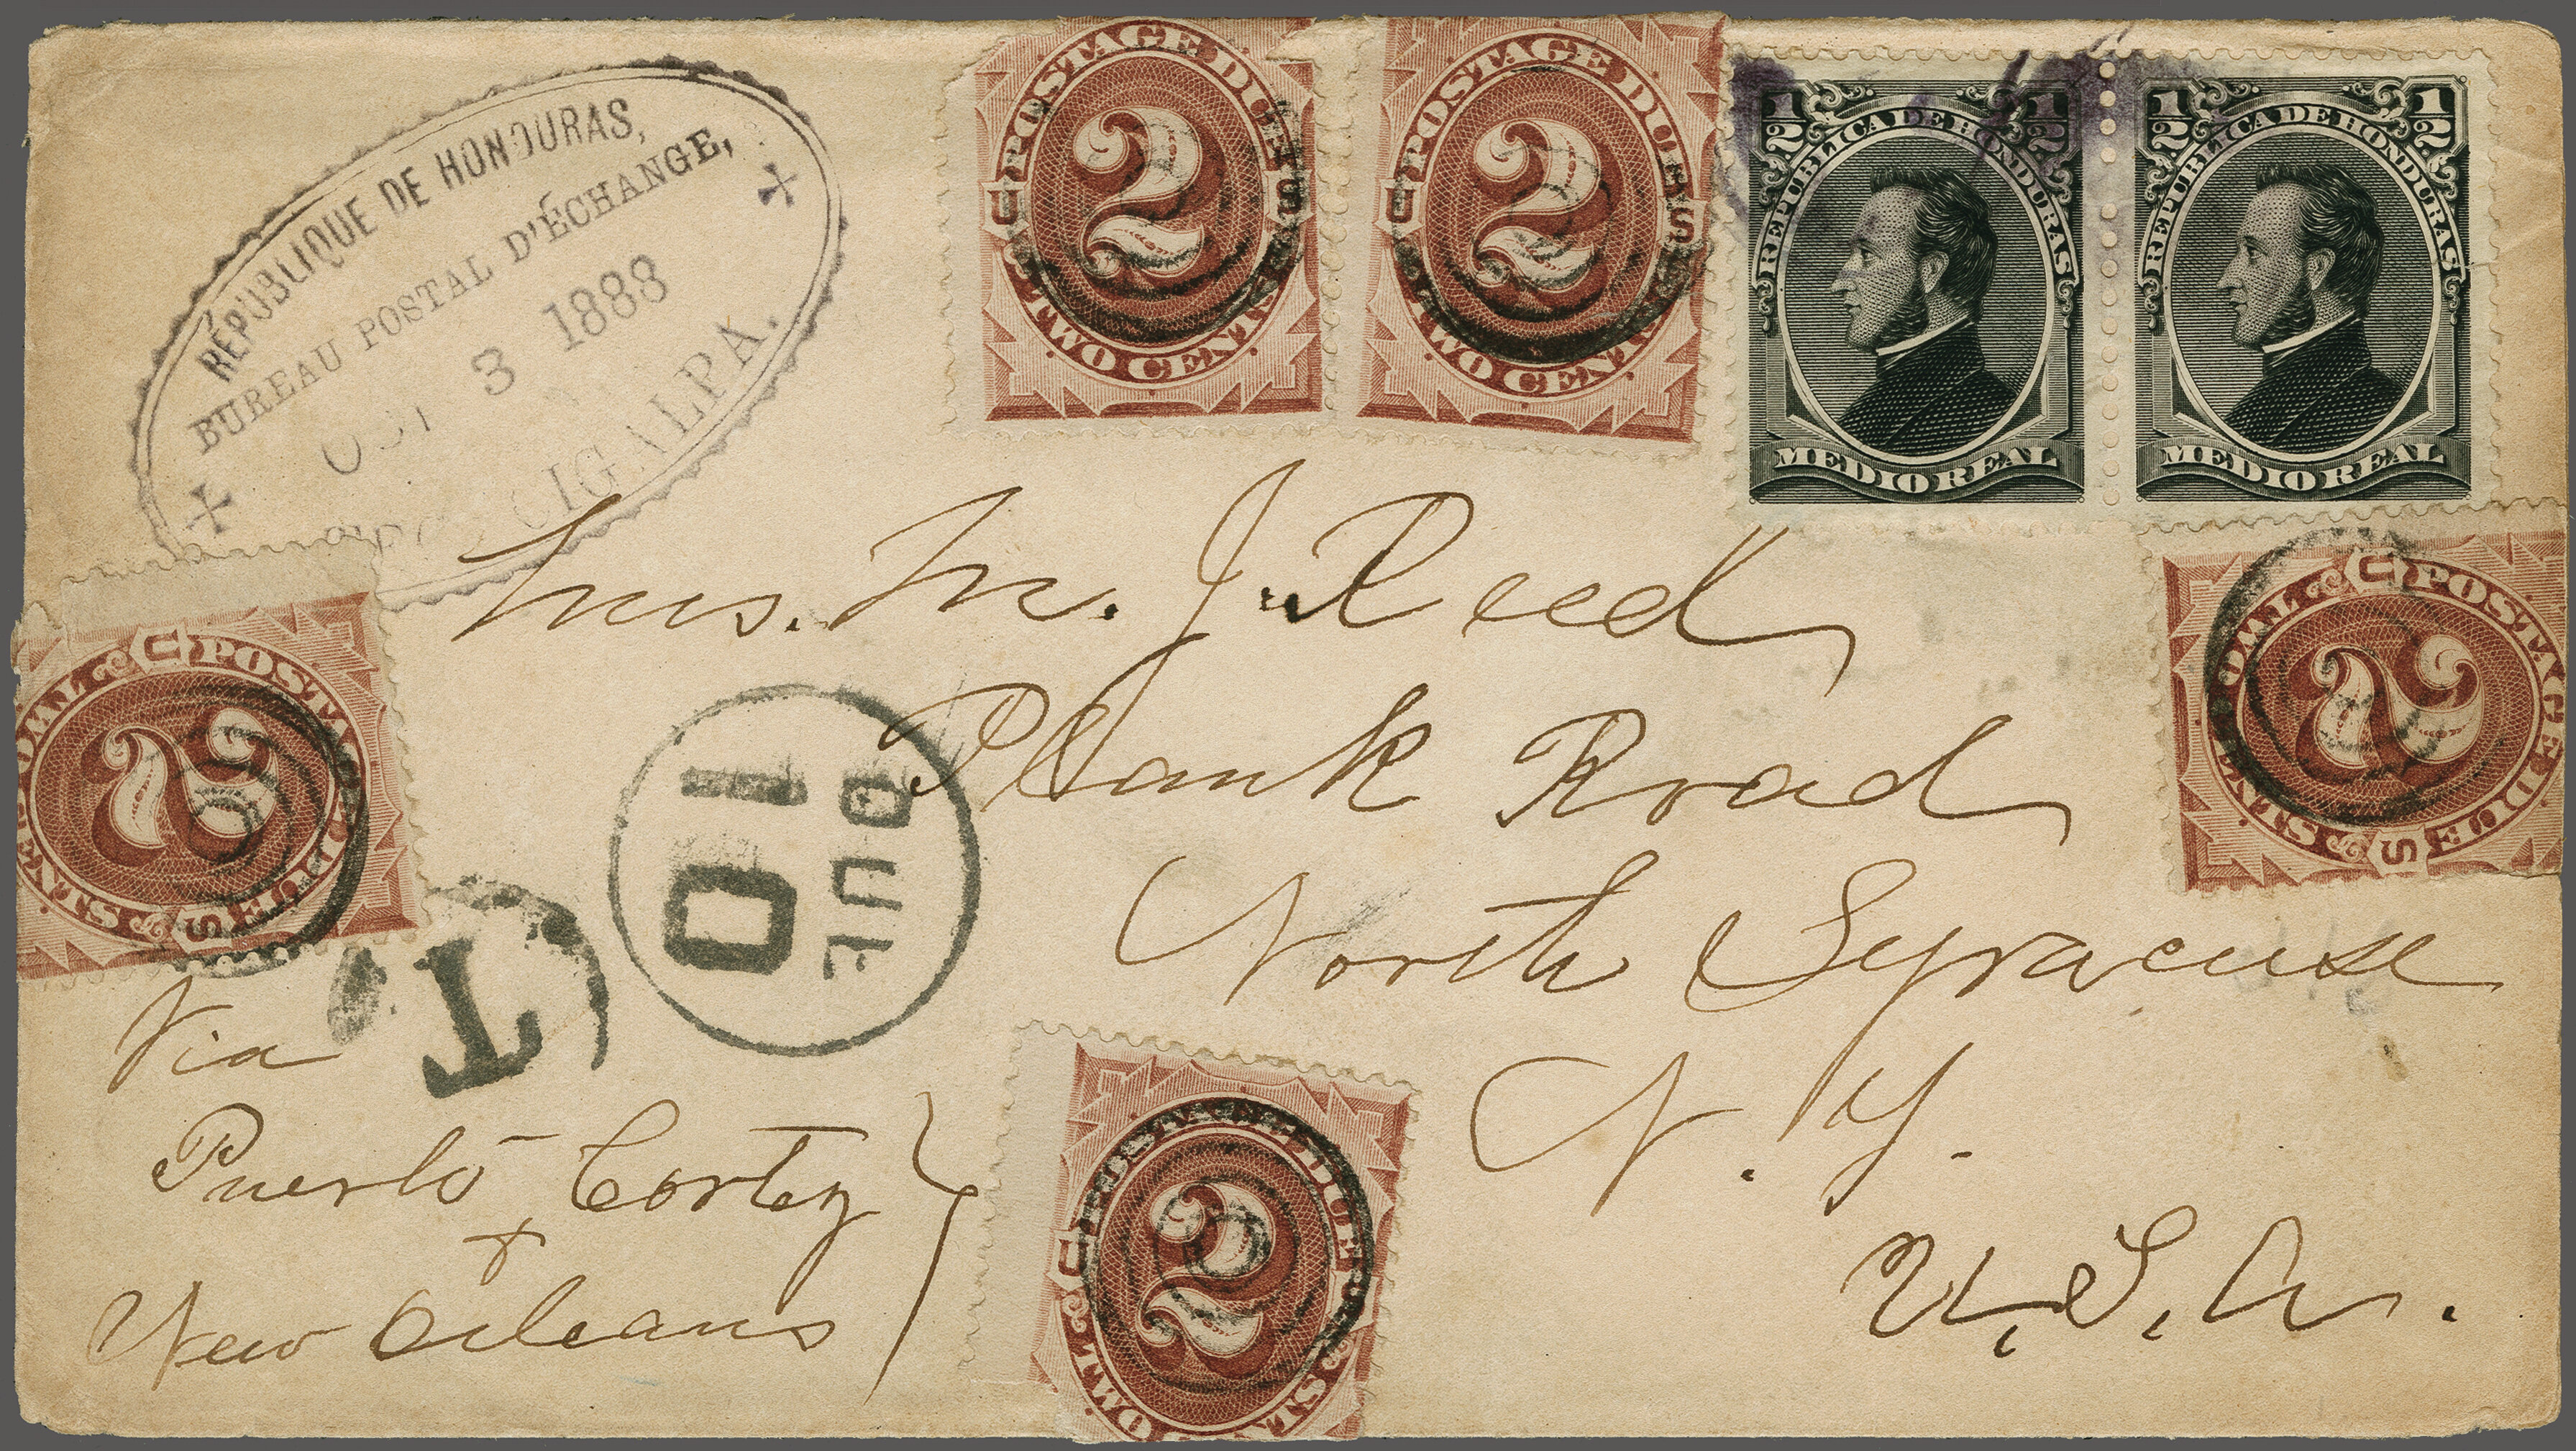 RÉPUBLIQUE DE HONDURAS,
BUREAU POSTAL D'ÉCHANGE,
3 1888
CIGALPA.
POSTAGE DUE
2
U S
TWO CENTS
POSTAGE DUE
2
U S
TWO CENTS
1/2 1/2
REPUBLICA DE HONDURAS
MEDIO REAL
1/2 1/2
REPUBLICA DE HONDURAS
MEDIO REAL
Mrs. M. J. Reed,
Plank Road,
North Syracuse
N. Y.
U. S. A.
U POSTAGE DUE S
2
TWO CENTS
U POSTAGE DUE S
2
TWO CENTS
DUE
10
T
Via
Puerto Cortez
+
New Orleans
POSTAGE DUE
2
U
TWO CENTS